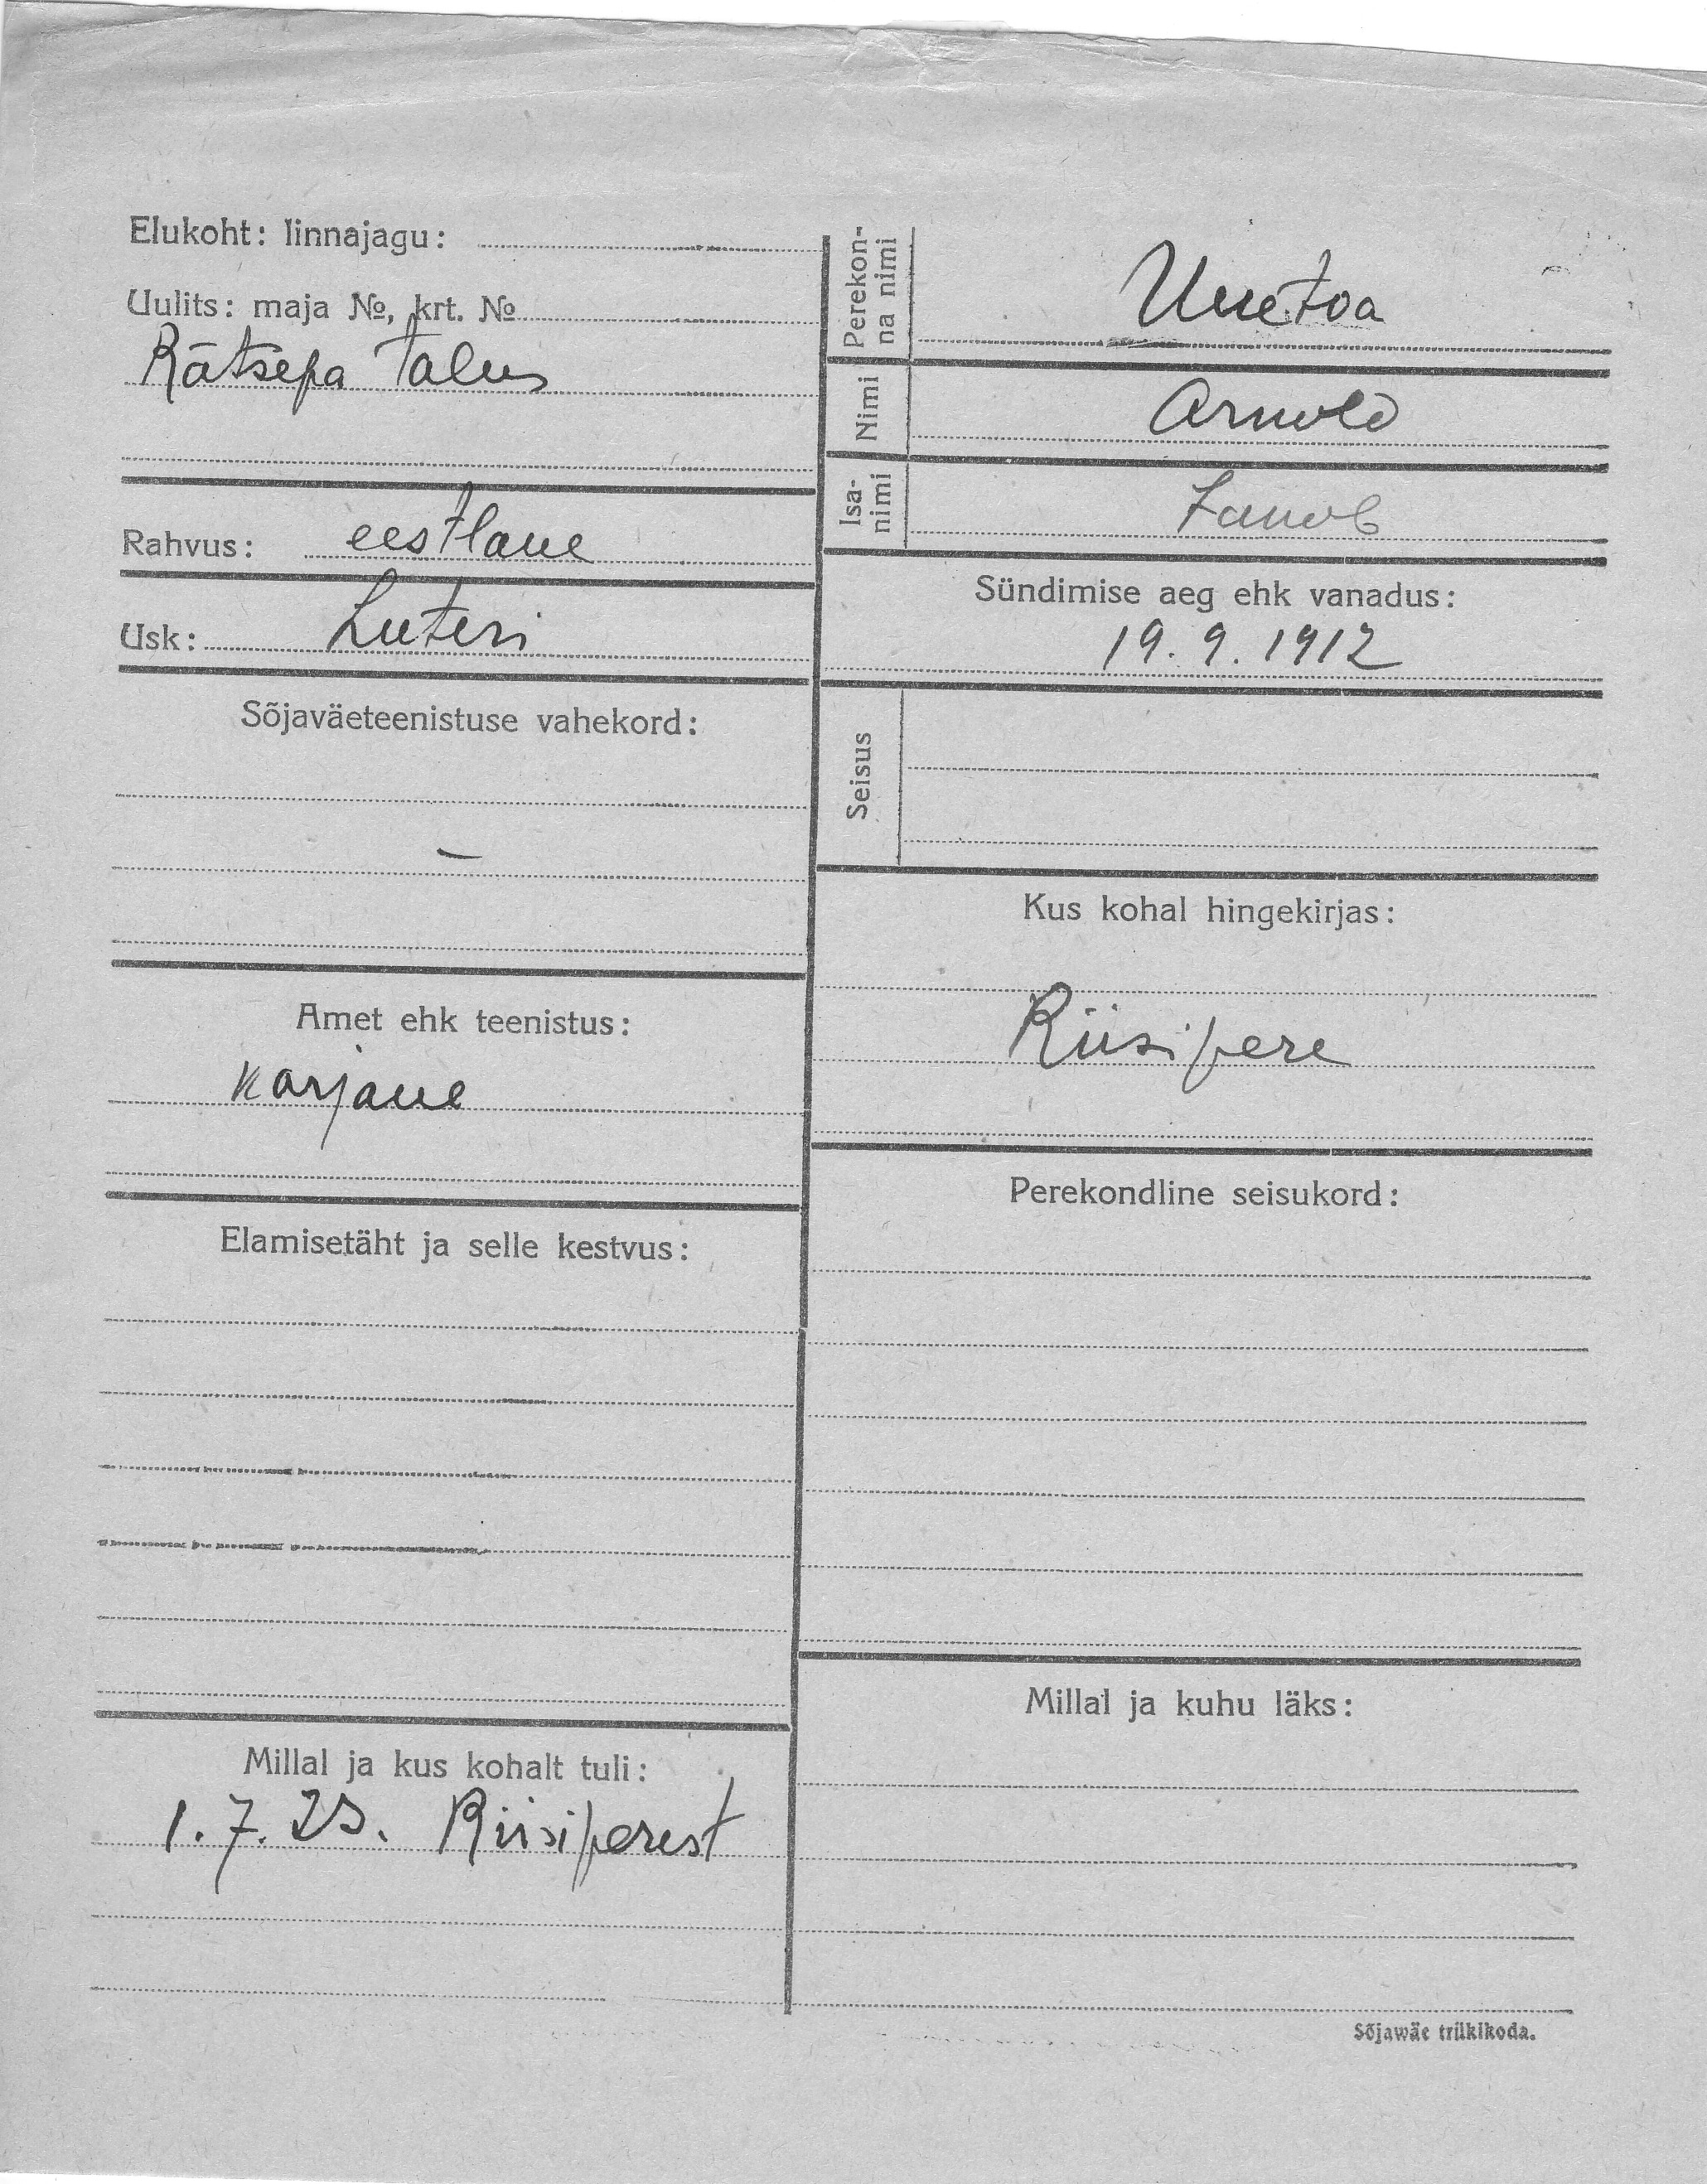 Elukoht: linnajagu:
Uulits: maja №, krt. №
Rätsepa talus
Rahvus: eestlane
Usk: Luteri
Sõjaväeteenistuse vahekord:
–
Amet ehk teenistus:
Karjane
Elamisetäht ja selle kestvus:
Millal ja kus kohalt tuli:
1.7.25. Riisiperest
Perekon-
na nimi
Uuetoa
Nimi
Arnold
Isa-
nimi
Sündimise aeg ehk vanadus:
19.9.1912
Seisus
Kus kohal hingekirjas:
Riisipere
Perekondline seisukord:
Millal ja kuhu läks:
Sõjawäe trükikoda.